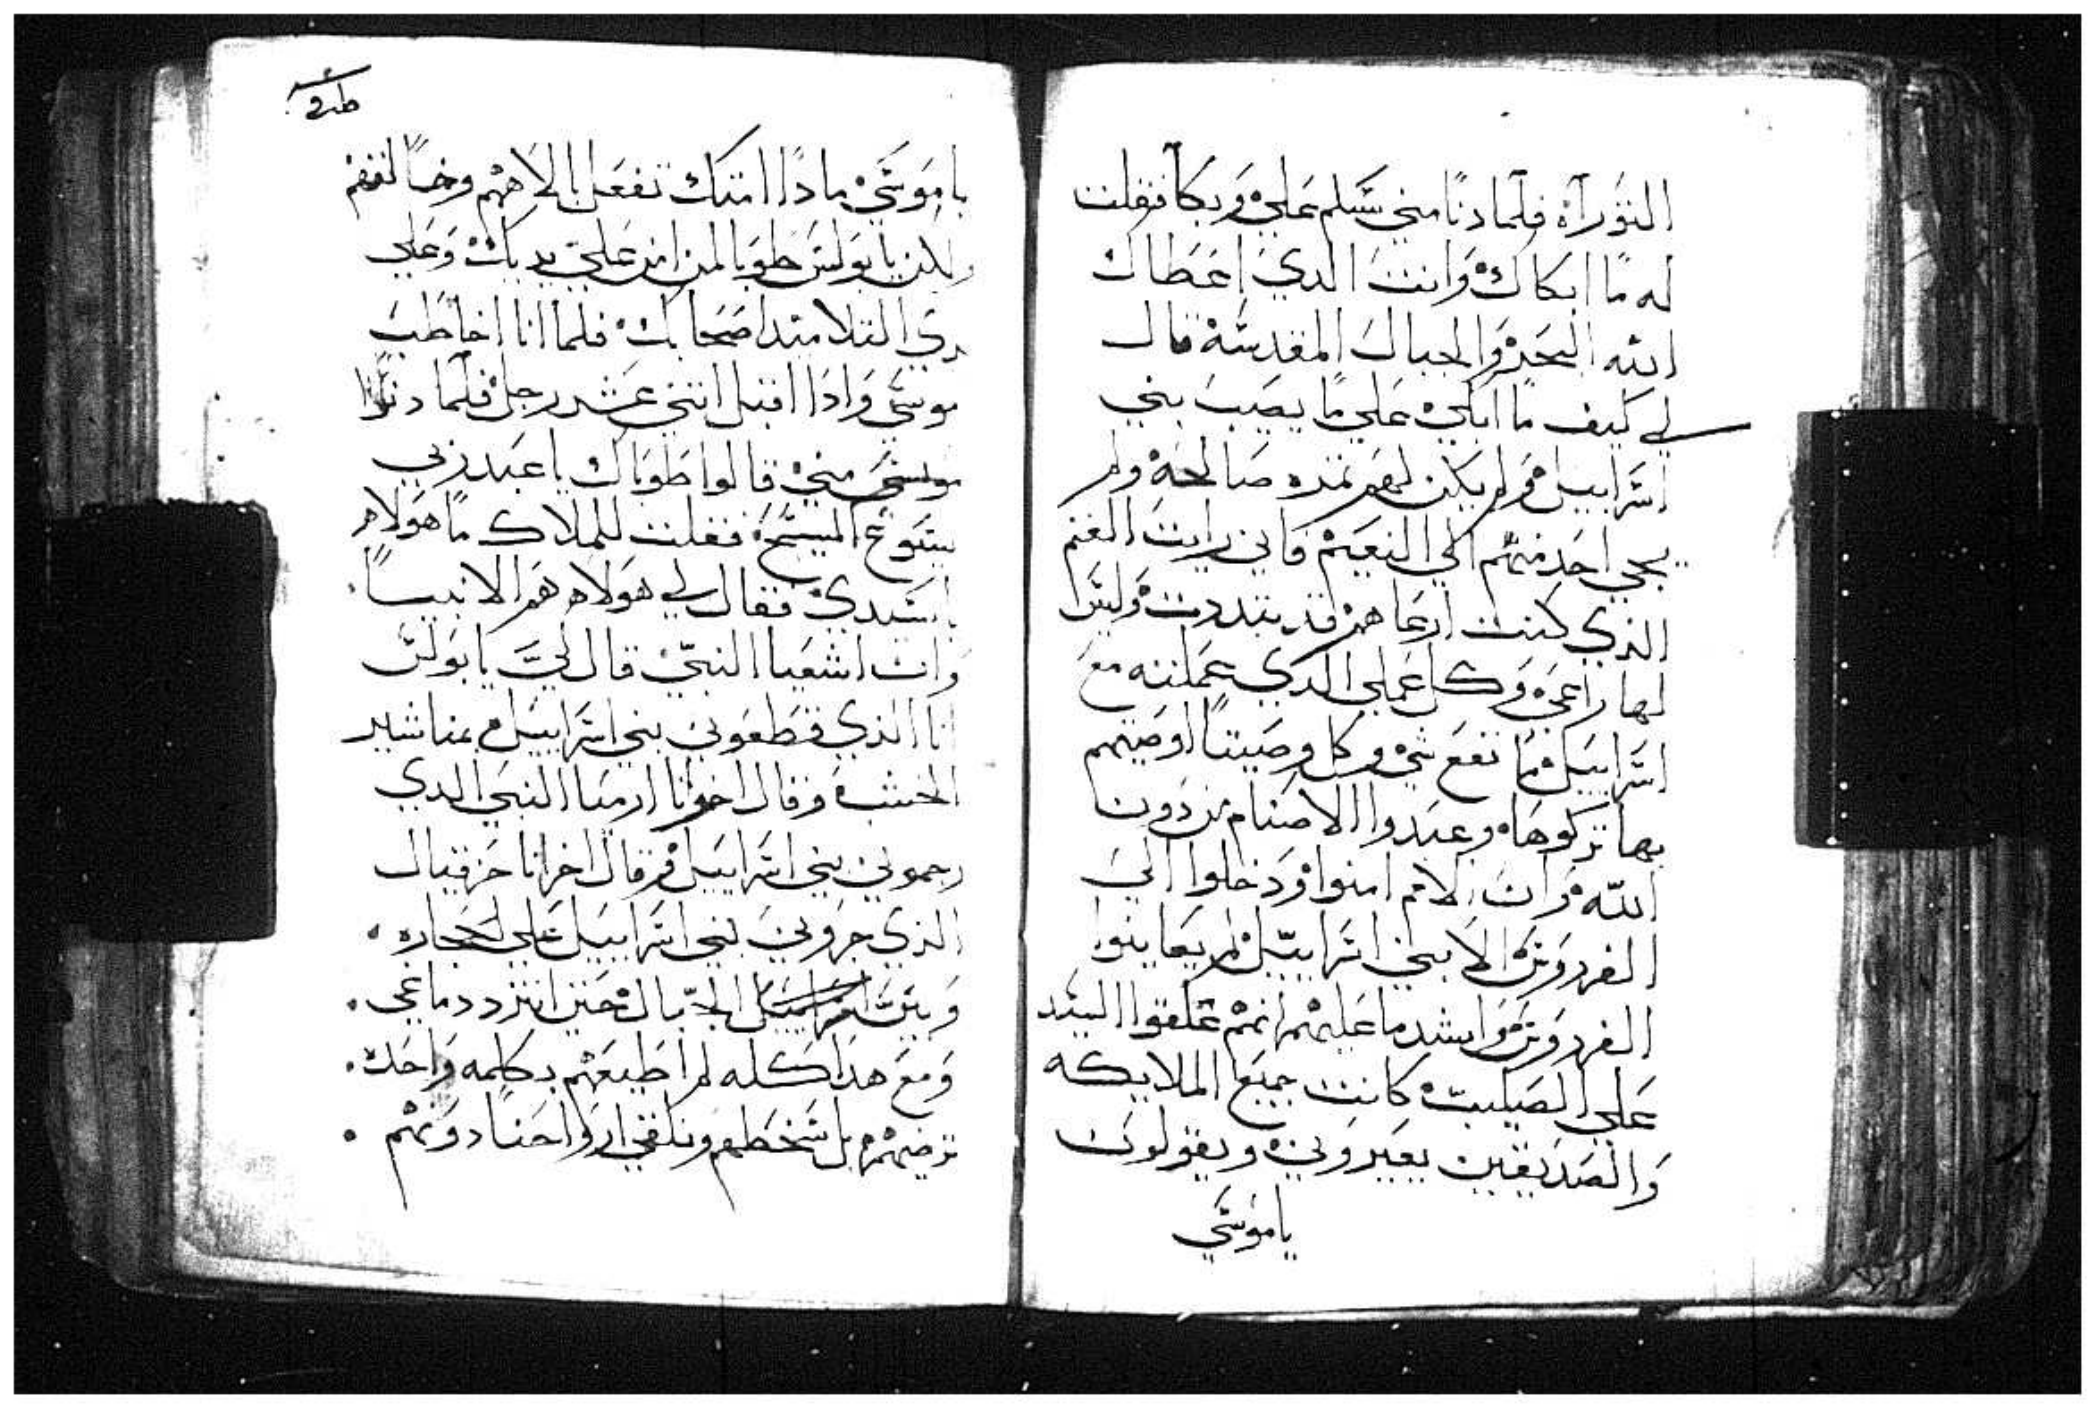 التوراه فلما دنا مني سلم علي وبكا فقلت
له ما ابكاك وانت الدي اعطاك
الله البحر والجبال المقدسه قال
لي كيف ما ابكي علي ما يصيب بني
اسراييل ولم يكن لهم تمره صالحه ولم
يجي احد منهم الي النعيم فاني رايت الغنم
الذي كنت ارعاهم قد تبددت وليس
لها راعي وكل عملي الدي عملته مع
اسراييل ما نفع شي وكل وصيتا اوصيتهم
بها تركوها وعبدوا الاصنام من دون
الله وان الامم امنوا ودخلوا الي
الفردوس الا بني اسراييل لم يعاينوا
الفردوس واشد ما عليهم انهم علقوا السيد
علي الصليب كانت جميع الملايكه
والصديقين يعيروني ويقولون
يا موسي
طوبي
يا موسي مادا امتك تفعل بالاههم وخالقهم
ولكن يا بولس طوبا لمن امن علي يديك وعلي
يدي التلاميد اصحابك فلما انا اخاطب
موسي وادا اقبل اتني عشر رجل فلما دنوا
مني قالوا طوباك يا عبد ربي
يسوع المسيح فقلت للملاك ما هولاه
يا سيدي فقال لي هولاه هم الانبيا
وان اشعيا النبي قال لي يا بولس
انا الذي قطعوني بني اسراييل بمناشير
الخشب وقال اخر انا ارميا النبي الدي
رجموني بني اسراييل وقال اخر انا حزقيال
الذي جروني بني اسراييل علي الحجاره
وبين الجبال حتي انتزد دماغي
ومع هدا كله لم اطيعهم بكلمه واحده
ترضيهم بل تسخطهم ونلقي ارواحنا دونهم